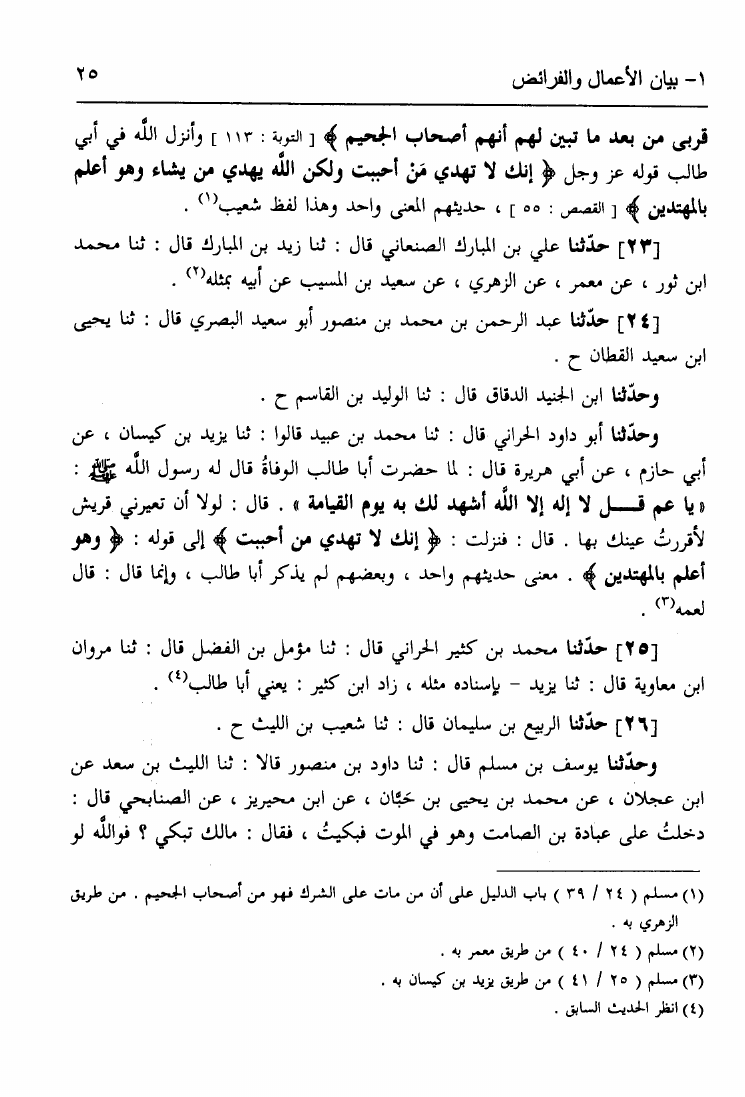 ١- بيان الأعمال والفرائض ٢٥
قربى من بعد ما تبين لهم أنهم أصحاب الجحيم ﴾ [ التوبة : ١١٣ ] وأنزل اللَّه في أبي
طالب قوله عز وجل ﴿ إنك لا تهدي مَنْ أحببت ولكن اللَّه يهدي من يشاء وهو أعلم
بالمهتدين ﴾ [ القصص : ٥٥ ] ، حديثهم المعنى واحد وهذا لفظ شعيب(١) .
[٢٣] حدّثنا علي بن المبارك الصنعاني قال : ثنا زيد بن المبارك قال : ثنا محمد
ابن ثور ، عن معمر ، عن الزهري ، عن سعيد بن المسيب عن أبيه بمثله(٢) .
[٢٤] حدّثنا عبد الرحمن بن محمد بن منصور أبو سعيد البصري قال : ثنا يحيى
ابن سعيد القطان ح .
وحدّثنا ابن الجنيد الدقاق قال : ثنا الوليد بن القاسم ح .
وحدّثنا أبو داود الحراني قال : ثنا محمد بن عبيد قالوا : ثنا يزيد بن كيسان ، عن
أبي حازم ، عن أبي هريرة قال : لما حضرت أبا طالب الوفاةُ قال له رسول اللَّه ﷺ :
« يا عم قـــل لا إله إلا اللَّه أشهد لك به يوم القيامة » . قال : لولا أن تعيرني قريش
لأقررتُ عينك بها . قال : فنزلت : ﴿ إنك لا تهدي من أحببت ﴾ إلى قوله : ﴿ وهو
أعلم بالمهتدين ﴾ . معنى حديثهم واحد ، وبعضهم لم يذكر أبا طالب ، وإنما قال : قال
لعمه(٣) .
[٢٥] حدّثنا محمد بن كثير الحراني قال : ثنا مؤمل بن الفضل قال : ثنا مروان
ابن معاوية قال : ثنا يزيد – بإسناده مثله ، زاد ابن كثير : يعني أبا طالب(٤) .
[٢٦] حدّثنا الربيع بن سليمان قال : ثنا شعيب بن الليث ح .
وحدّثنا يوسف بن مسلم قال : ثنا داود بن منصور قالا : ثنا الليث بن سعد عن
ابن عجلان ، عن محمد بن يحيى بن حَبَّان ، عن ابن محيريز ، عن الصنابحي قال :
دخلتُ على عبادة بن الصامت وهو في الموت فبكيتُ ، فقال : مالك تبكي ؟ فواللَّه لو
(١) مسلم ( ٢٤ / ٣٩ ) باب الدليل على أن من مات على الشرك فهو من أصحاب الجحيم . من طريق
الزهري به .
(٢) مسلم ( ٢٤ / ٤٠ ) من طريق معمر به .
(٣) مسلم ( ٢٥ / ٤١ ) من طريق يزيد بن كيسان به .
(٤) انظر الحديث السابق .